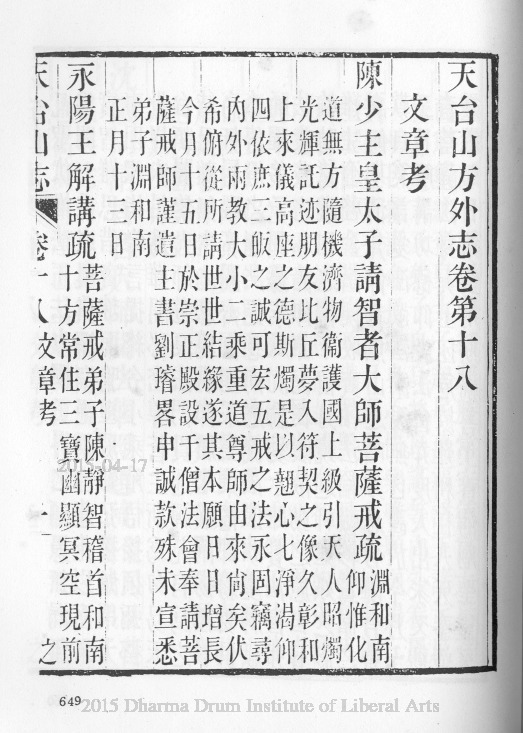 天台山方外志卷第十八
文章考
陳少主皇太子請智者大師菩薩戒疏 淵和南
仰惟化
道無方隨機濟物衞護國土級引天人昭燭
光輝託迹朋友比丘夢入符契之像久彰和
上來儀高座之德斯燭是以翹心七淨渴仰
四依庶三皈之誠可宏五戒之法永固竊尋
內外兩教大小二乘重道尊師由來尙矣伏
希俯從所請世世結緣遂其本願日日增長
今月十五日於崇正殿設千僧法會奉請菩
薩戒師謹遣主書劉璿畧申誠款殊未宣悉
弟子淵和南
正月十三日
永陽王解講疏 菩薩戒弟子陳靜智稽首和南
十方常住三寶幽顯冥空現前
天台山志 卷十八文章考 一 之
2015-04-17
649
2015 Dharma Drum Institute of Liberal Arts